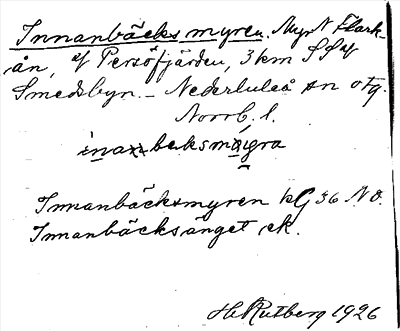 Innanbäcksmyren. Myr N Flark-
ån, v/ Persöfjärden, 3 km SSV
Smedsbyn. – Nederluleå sn o tg.
Norrb. l.
Innanbäcksmyren kG 36 NO.
Innanbäcksänget ek.
H Rutberg 1926